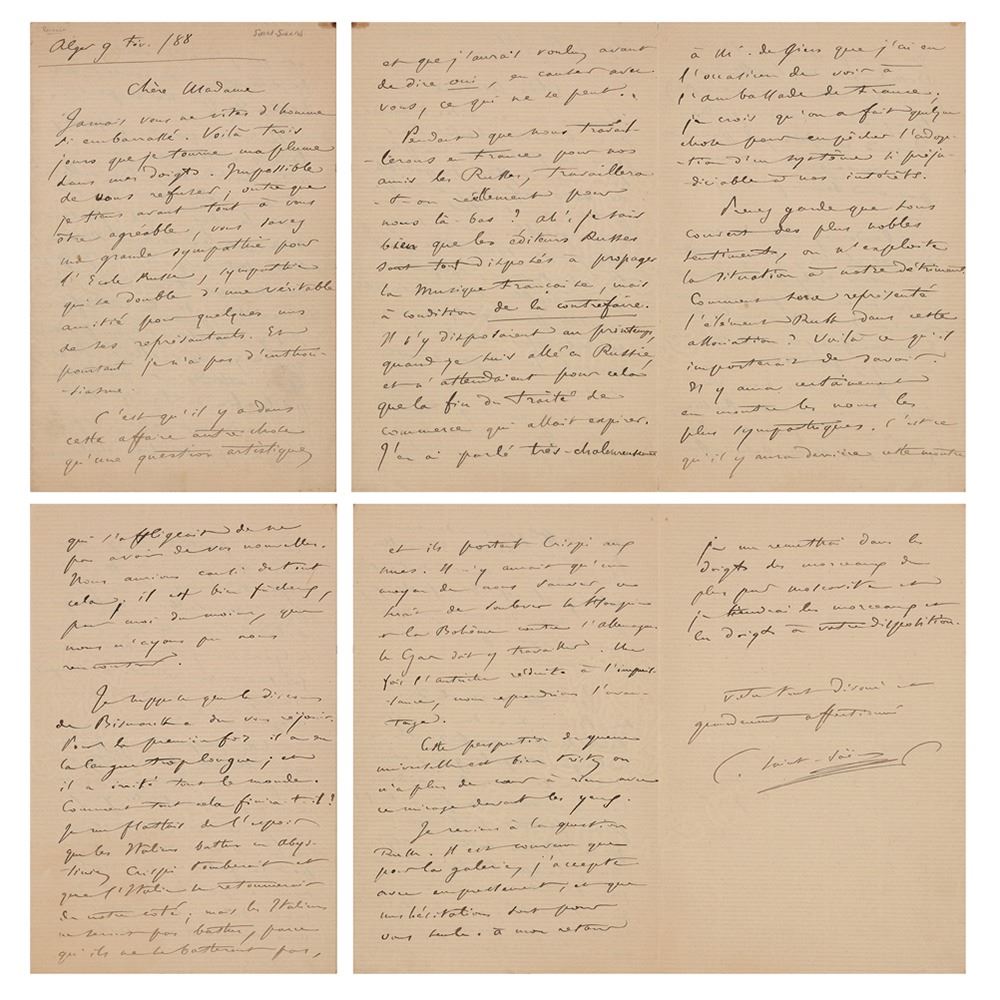 Saint-Saëns
Alger 9 Fév. /88
Chère Madame
Jamais vous ne vîtes d'homme
si embarrassé. Voilà trois
jours que je tourne ma plume
dans mes doigts. Impossible
de vous refuser ; outre que
je tiens avant tout à vous
être agréable, vous savez
ma grande sympathie pour
l'Ecole Russe, sympathie
qui se double d'une véritable
amitié pour quelques uns
de ses représentants. Et
pourtant je n'ai pas d'enthou-
-siasme.
C'est qu'il y a dans
cette affaire autre chose
qu'une question artistique,
et que j'aurais voulu, avant
de dire oui, en causer avec
vous, ce qui ne se peut.
Pendant que nous travail-
-lerons en France pour nos
amis les Russes, travaillera
-t-on réellement pour
nous là-bas ? Ah ! je sais
bien que les éditeurs Russes
sont tout disposés à propager
la Musique Française, mais
à condition de la contrefaire.
Il s'y disposaient au printemps,
quand je suis allé en Russie,
et n'attendaient pour cela
que la fin du Traité de
commerce qui allait expirer.
J'en ai parlé très-chaleureusement
à M. de que j'ai eu
l'occasion de voir à
l'ambassade de France.
je crois qu'on a fait quelque
chose pour empêcher l'adop-
-tion d'un système si préju-
-diciable à nos intérêts.
Prenez garde que sous
couvert des plus nobles
sentiments, on n'exploite
la situation à notre détriment.
Comment sera représenté
l'élément Russe dans cette
association ? Voilà ce qu'il
importerait de savoir.
Il y aura certainement
en montre les noms les
plus sympathiques. C'est ce
qu'il y aura derrière cette montre
qui s'affligeait de ne
pas avoir de vos nouvelles.
Nous aurions causé de tout
cela. il est bien fâcheux,
pour moi du moins, que
nous n'ayons pu nous
rencontrer.
Je suppose que le discours
de Bismarck a du vous réjouir.
Pour la première fois il a eu
la langue trop longue ; et
il a irrité tout le monde.
Comment tout cela finira-t-il ?
Je me flattais de l'espoir
que les Italiens battus en Abys-
-sinie, Crispi tomberait et
que l'Italie se retournerait
de notre côté ; mais les Italiens
ne seront pas battus, parce
qu'ils ne se battront pas,
et ils portent Crispi aux
nues. Il n'y aurait qu'un
moyen de nous sauver, ce
serait de soulever la Hongrie
et la Bohême contre l'Allemagne.
le Czar doit y travailler. Une
fois l'Autriche réduite à l'impuis-
-sance, nous reprendrions l'avan-
-tage.
Cette perspective de guerre
universelle est bien triste, on
n'a plus de cœur à rien avec
ce mirage devant les yeux.
Je reviens à la question
Russe. Il est convenu que
pour la galerie, j'accepte
avec empressement ; et que
mes hésitations sont pour
vous seule. à mon retour
je me remettrai dans les
doigts des morceaux du
plus pur moscovite et
je tiendrai les morceaux et
les doigts à votre disposition.
votre tout dévoué et
grandement affectionné
C. Saint-Saëns